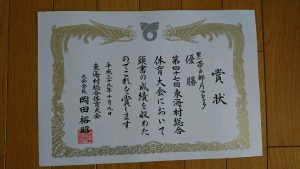 賞状
優勝
第四十七回東海村総合
体育大会において
頭書の成績を収めた
のでこれを賞します
平成二十九年十月九日
東海村総合体育大会
大会会長 岡田裕昭